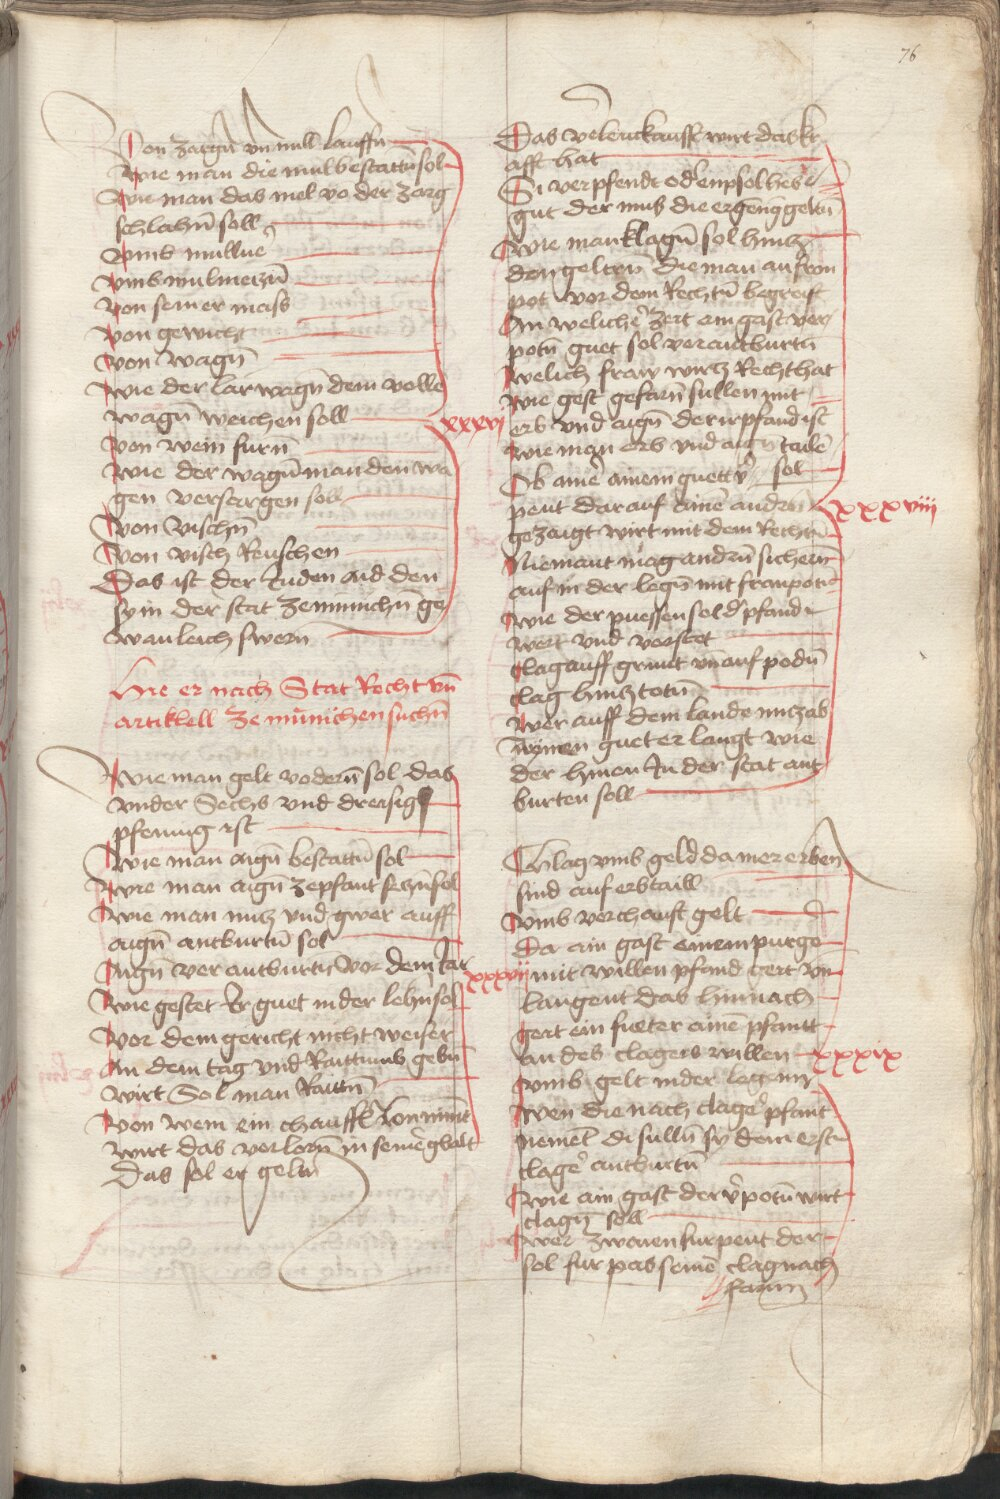 76
Von zargn̄ vn̄ mull lauffn̄
Wie man die mul bestattn̄ sol
Wie man das mel vo der zarg
schlahn̄ soll
Vmb mullnē
Vmb mulmetzn̄
Von seiner mass
Von gewicht
Von wagn̄
Wie der lär wagn̄ dem volle
wagn̄ weichen soll
xxxvj
Von wein furn̄
Wie der wagn̄ man den wa
gen versorgen soll
Von Vischn̄
Von visch Reuschen
Das ist der Juden aid den
sy in der stat ze münichn̄ ge
wanleich swern
Hie er nach Stat Recht vn̄
artikell ze münichen suchn̄
Wie man gelt vodern̄ sol das
vnder Sechs vnd dreisig
pfening ist
Wie man aign̄ bestattn̄ sol
Wie man aign̄ ze pfant seczn̄ sol
Wie man nucz vnd gwer auff
aign̄ antburtn̄ sol
Aign̄ verantburtn̄ vor dem Jar
xxxvij
Wie gestet Ir guet in der lehn̄ sol
Vor dem gericht nicht weiser
An dem tag vnd Raittung gebn̄
wirt Sol man Raittn̄
Von wem ein chauffl lon nimt
wirt das verlorn̄ in seinē gbalt
Das sol er geltn̄
Das velenkauff wirt das kr
afft hat
Si verpfendt od enpfolhes
gut der mus die ergeng geltn̄
Wie man klagn̄ sol hincz
den geltern̄ die man an fron
pot vor dem Rechtn̄ begreift
An welichē zeit ein gast ver
potn̄ guet sol verantburtn̄
Welich fraw wircz Recht hat
Wie gest gefarn̄ sullen mit
erb vnd aign̄ der ir pfand ist
Wie man erb vnd aign̄ tailē
sol
Ob ainē ainem guett v̄
peut darauf ainē andrn̄
xxxviij
gezaigt wirt mit dem Rechtn̄
Niemant mag andrn̄ sichern̄
auf in der legn̄ mit fronpotn̄
Wie der puessen sol d' pfand
wert vnd verstet
Clag auff grunt vn̄ auf podn̄
clag hincz totn̄
Wer auff dem lande nucz ab
nymen guet er langt wie
der hinen In der stat ant
burten soll
Chlag vmb geld da mer erben
sind auf erbtaill
Vmb verchauft gelt
Da ain gast einem purge
mit willen pfand gert vn̄
langent das hinnach
gert ein fueter ainē pfantt
an des clagers willen
xxxix
Vmb gelt in der legung
Wen die nach clagē pfant
nement di sulln̄ sy dem erstn̄
clagē antburtn̄
Wie ain gast der v̄potn̄ wirt
clagn̄ soll
Wer zwaien furpeut der
sol fur pas seinē clag nach
farnn